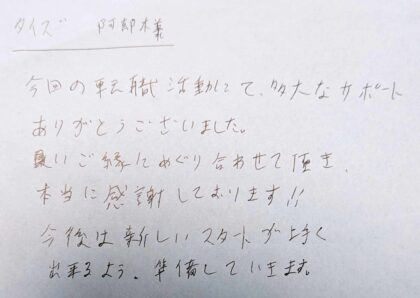 タイズ 阿部様
今回の転職活動にて、多大なサポート
ありがとうございました。
良いご縁にめぐり合わせて頂き、
本当に感謝しております!!
今後は新しいスタートが上手く
出来るよう、準備していきます。